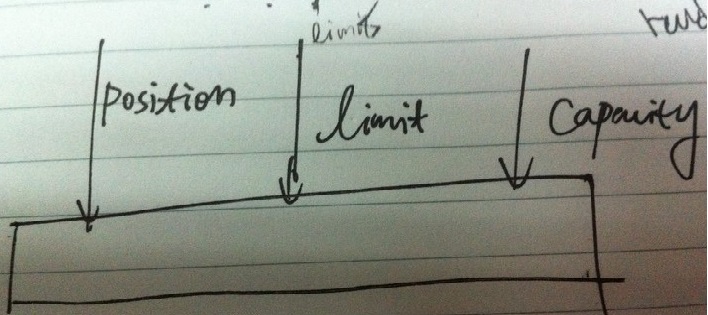 limits
position limit Capacity